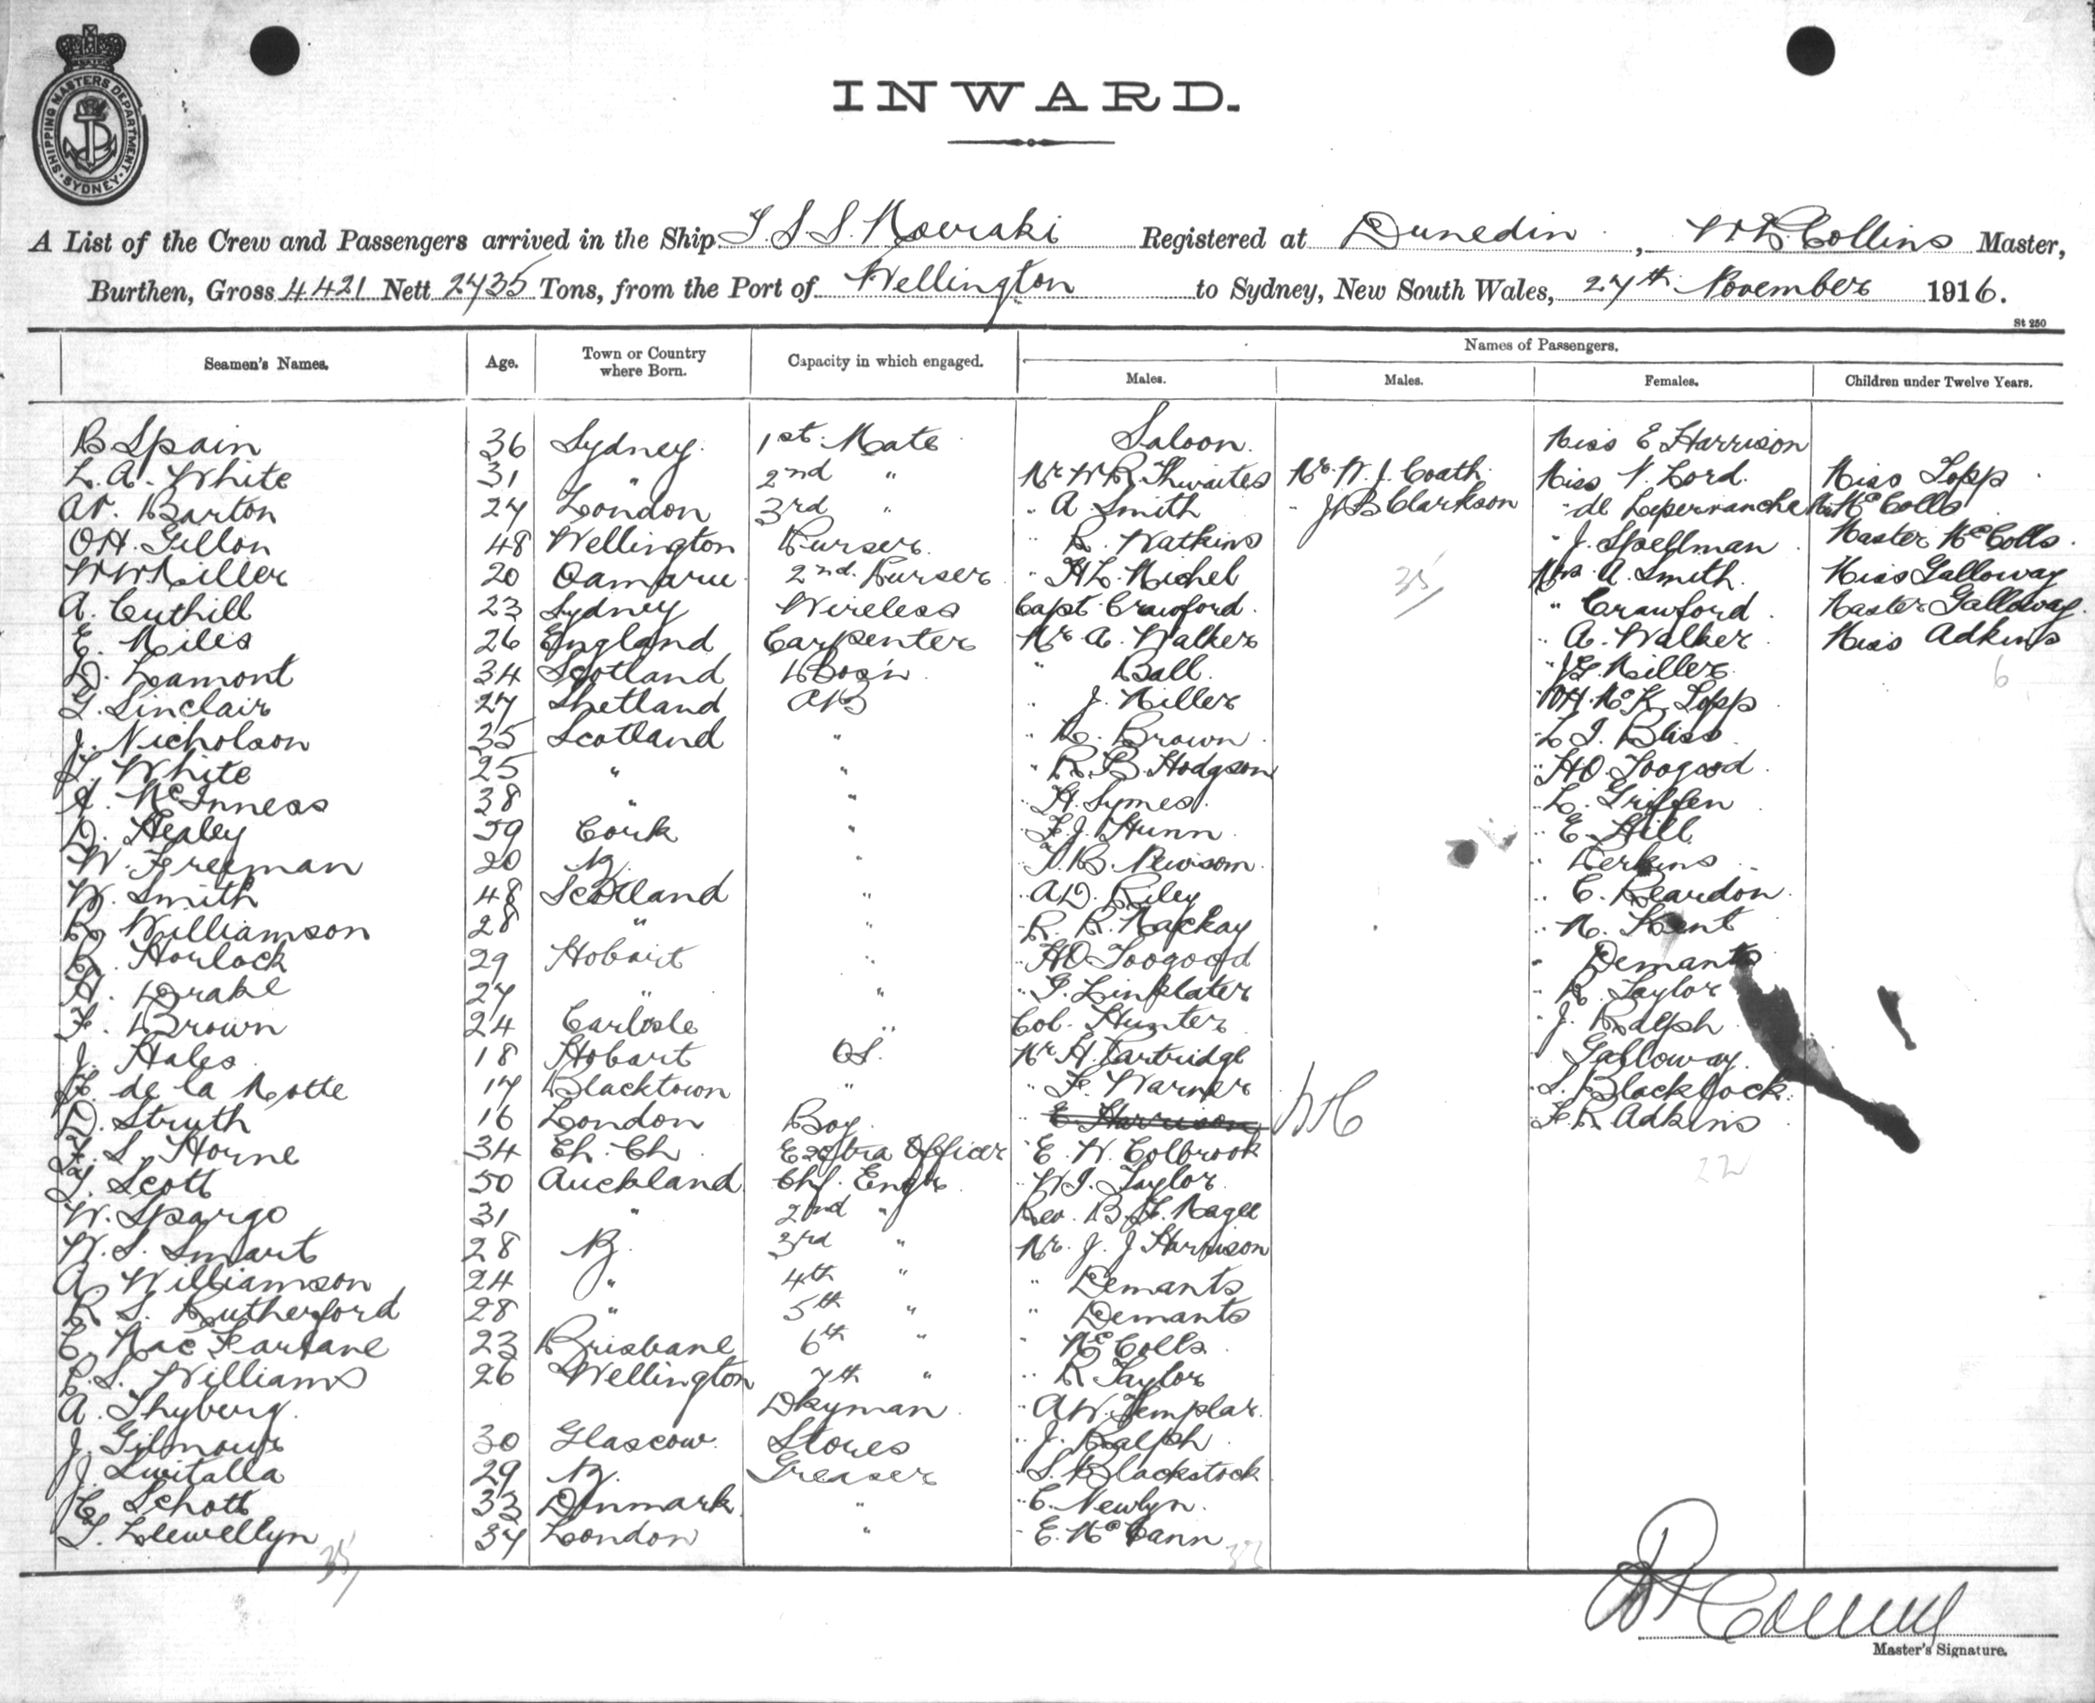 SHIPPING MASTERS DEPARTMENT. SYDNEY.
INWARD.
A List of the Crew and Passengers arrived in the Ship T.S.S. Moeraki Registered at Dunedin, W D Collins Master,
Burthen, Gross 4421 Nett 2435 Tons, from the Port of Wellington to Sydney, New South Wales, 27th November 1916.
St 250
Seamen's Names. Age. Town or Country where Born. Capacity in which engaged. Names of Passengers.
Males. Males. Females. Children under Twelve Years.
B Spain 36 Sydney. 1st Mate Saloon. Miss E Harrison
L. A. White 31 " 2nd " Mr W R. Thwaites Mr. W. J. Coath. Miss V. Lord. Miss Topp
AV. Barton 27 London 3rd " " A Smith " J B Clarkson " de Lepervanche Miss McColls
O H. Gillon 48 Wellington Purser. " R. Watkins " J. Spellman Master McColls.
W W Miller 20 Oamaru 2nd. Purser " H L. Michel 35 Mrs A. Smith. Miss Galloway
A. Cuthill 23 Sydney Wireless Capt. Crawford. " Crawford. Master Galloway.
E. Miles 26 England Carpenter Mr. A. Walker " A. Walker Miss Adkins
D. Lamont 34 Scotland Bos'n " Ball. " J G. Miller 6
G. Sinclair 27 Shetland AB " J. Miller W H. McK. Topp
J. Nicholson 35 Scotland " " L. Brown. L I. Bliss
T. White 25 " " " R. B. Hodgson " H O. Toogood
A. McInness 38 " " " H. Symes. " L. Griffen
D. Healey 59 Cork " " F. J. Hunn " E. Hill
W. Freeman 20 NZ " " T. B. Newsom. " Perkins
W. Smith 48 Scotland " " A D. Riley " C. Reardon
R. Williamson 28 " " " R. R. Mackay " M. Kent
R. Horlock 29 Hobart " " H O Toogood " Demants
H. Drake 27 " " " G. Linklater " R. Taylor
F. Brown 24 Carlisle " Col. Hunter " J. Ralph
J. Hales 18 Hobart OS. Mr H Partridge Galloway
F. de la Motte 17 Blacktown " " F. Warner " S. Blacklock
D. Struth 16 London Boy " E Harrison " F. R. Adkins
F. S. Horne 34 Ch. Ch. Extra Officer " E. W. Colbrook
G. Scott 50 Auckland Chf. Engr. " W I. Taylor 22
W. Spargo 31 " 2nd " Rev. B. F. Magee
W. S. Smart 28 NZ. 3rd " Mr. J. J Harrison
A. Williamson 24 " 4th " " Demants
R S. Rutherford 28 " 5th " " Demants
C. MacFarlane 23 Brisbane 6th " " McColls
P. S. Williams 26 Wellington 7th " " R Taylor
A. Thyberg. Dkyman " A W. Templar.
J. Gilmour 30 Glascow Stores " J. Ralph
J. Switalla 29 NZ. Greaser " S. Blackstock
C. Schott 33 Denmark " " C. Newlyn.
T. Llewellyn 37 London " " E. McCann
35 32
Master's Signature.